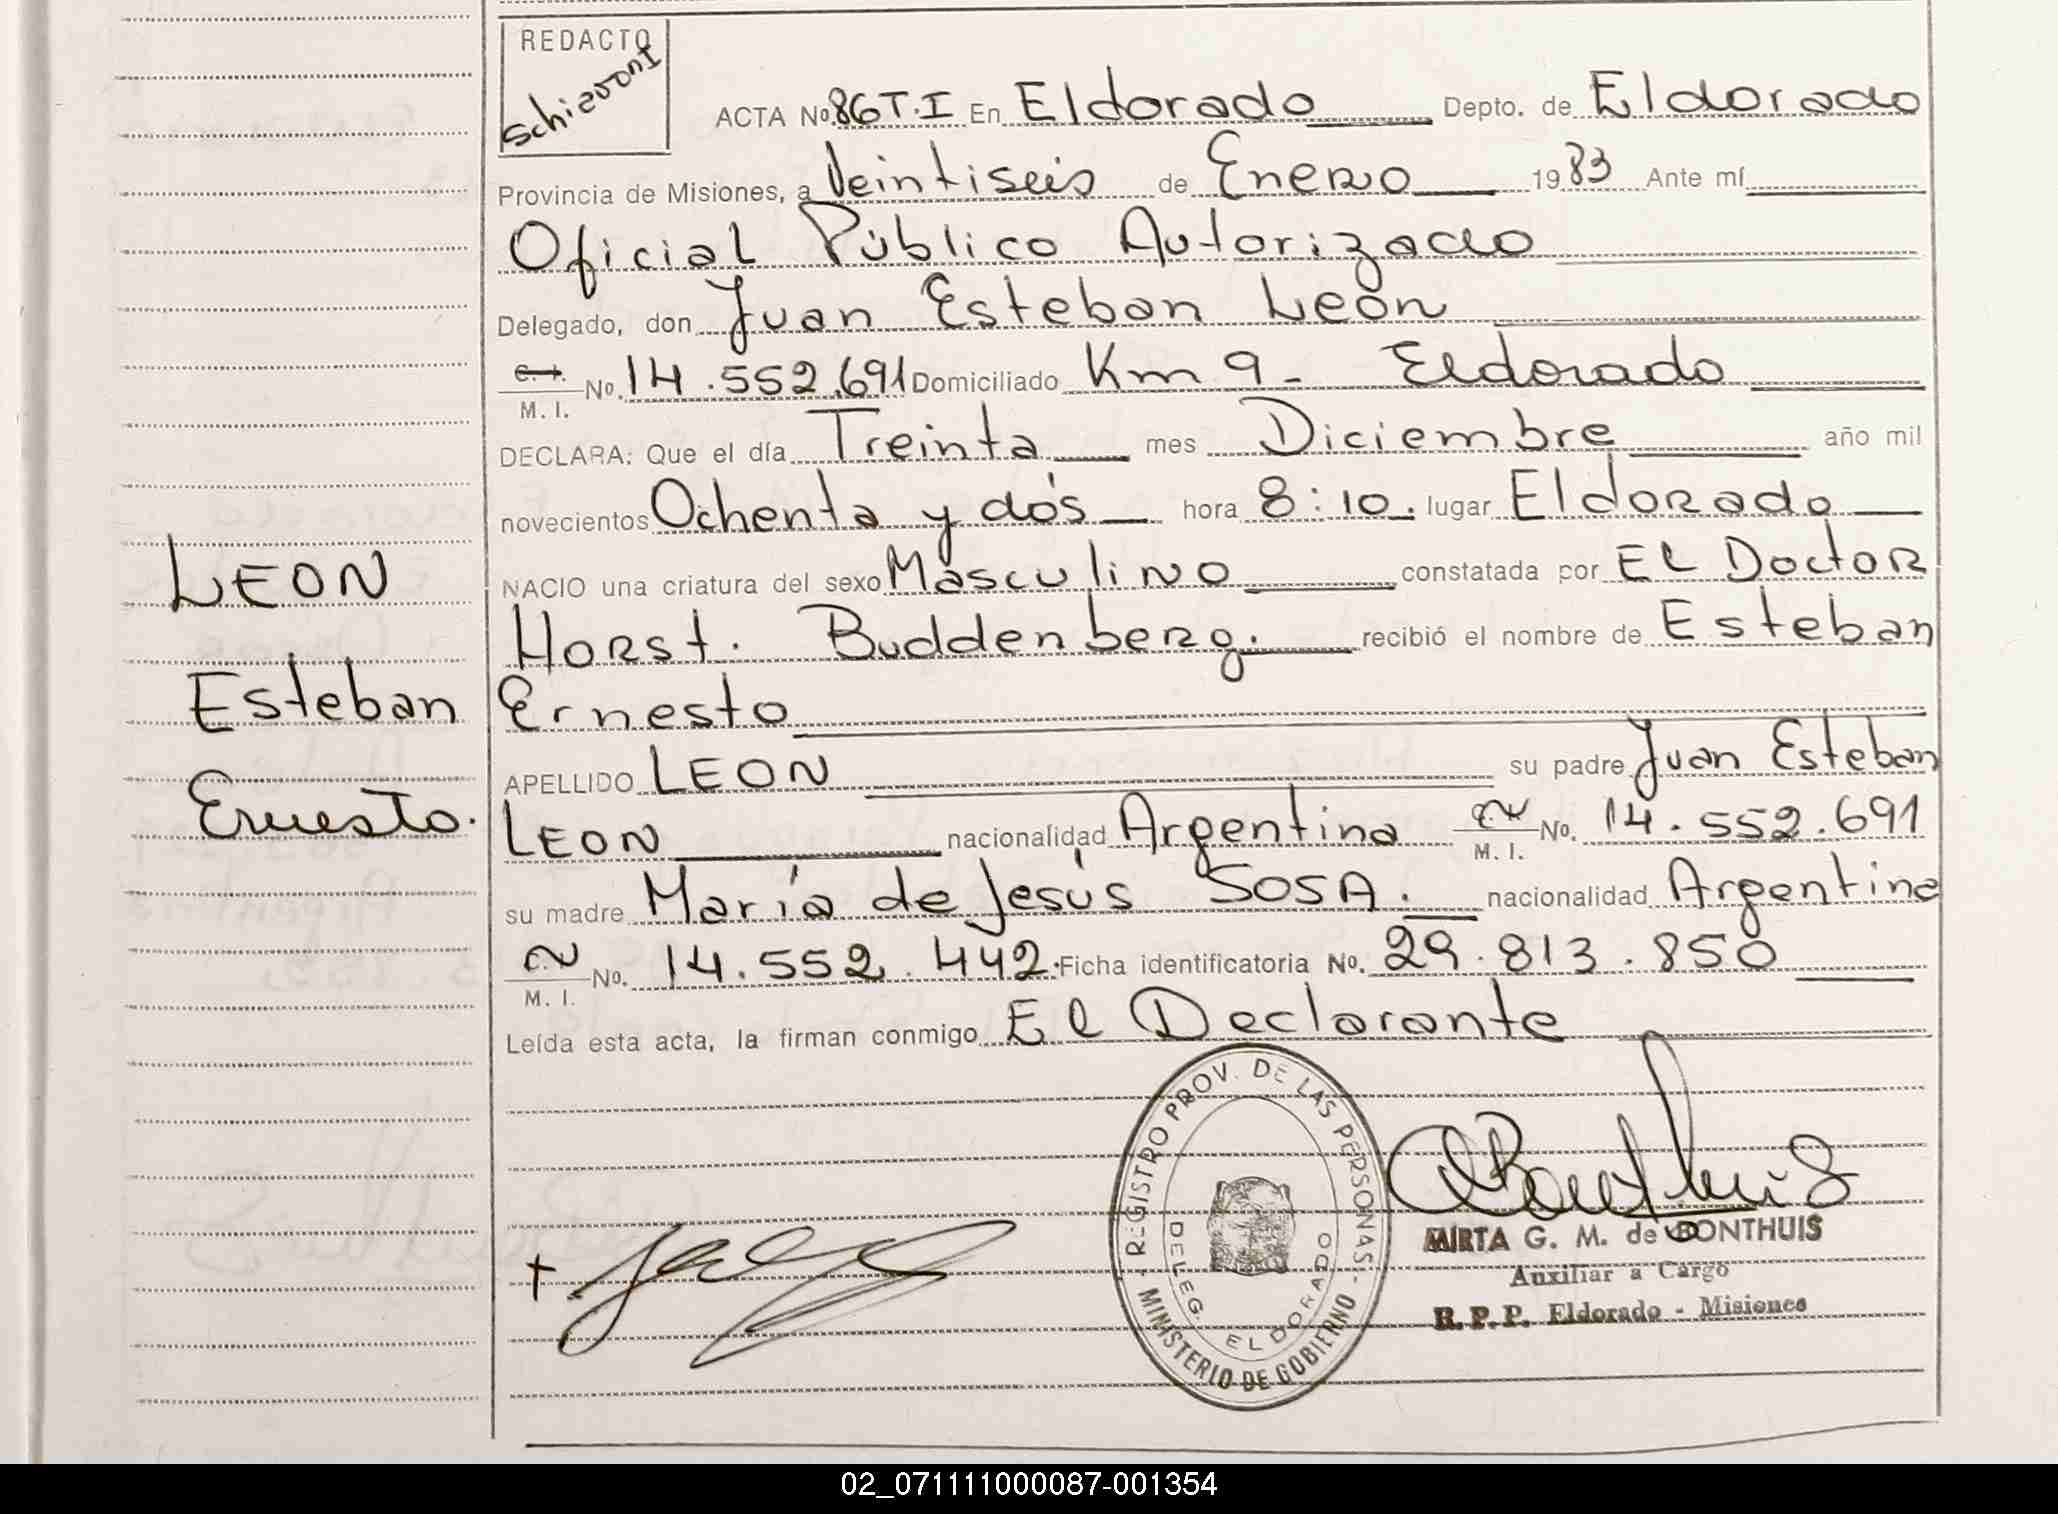 REDACTO
Schiavoni
ACTA No 86 T.I En Eldorado Depto. de Eldorado
Provincia de Misiones, a Veintiseis de Enero 1983 Ante mí
Oficial Público Autorizado
Delegado, don Juan Esteban León
C.I. No. 14.552.691 Domiciliado Km 9 - Eldorado
M. I.
DECLARA: Que el día Treinta mes Diciembre año mil
novecientos Ochenta y dós hora 8:10. lugar Eldorado
NACIO una criatura del sexo Masculino constatada por El Doctor
Horst. Buddenberg. recibió el nombre de Esteban
Ernesto
APELLIDO LEON su padre Juan Esteban
LEON nacionalidad Argentina No. 14.552.691
M. I.
su madre María de Jesús SOSA. nacionalidad Argentina
No. 14.552.442. Ficha identificatoria No. 29.813.850
M. I.
Leída esta acta, la firman conmigo El Declarante
LEON
Esteban
Ernesto.
REGISTRO PROV. DE LAS PERSONAS - MINISTERIO DE GOBIERNO -
DELEG. ELDORADO
MIRTA G. M. de BONTHUIS
Auxiliar a Cargo
R. P. P. Eldorado - Misiones
02_071111000087-001354